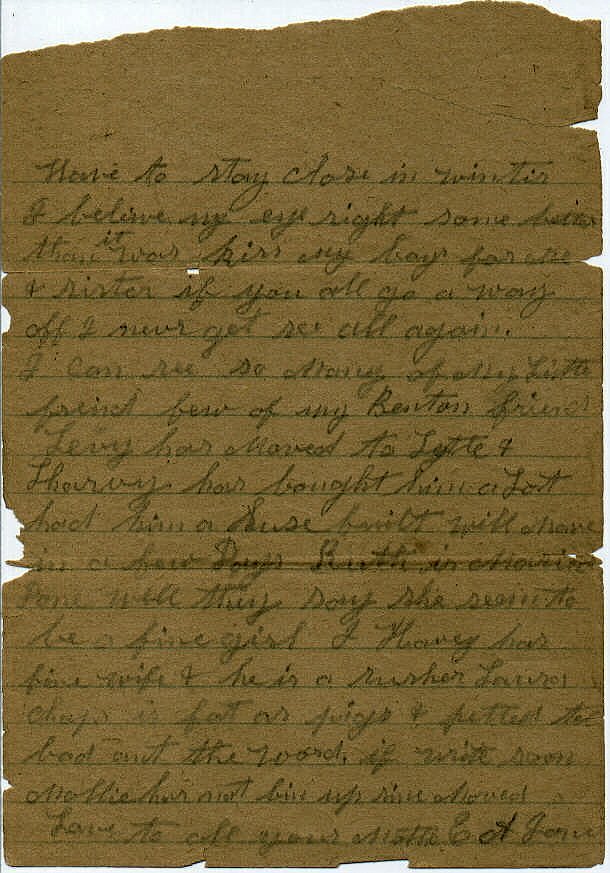 Have to stay close in winter
I believe my eye right some better
than it was kiss my boys for me
& sister if you all go a way
off I never get see all again.
I can see so Many of My Little
freind bew of my Benton friend
Levy has Moved to Lytle &
Harvy has bought him a Lot
had him a huse built will Move
in a few Days Ruth is Maried
Done well they say she seem to
be a fine girl J Harvy has
fine wife & he is a rusher Laura
Chaps is fat as pigs & petted to
bad ant the word, if write soon
Mollie has not bin up sinc Moved
Love to all your Mothe E A Jone